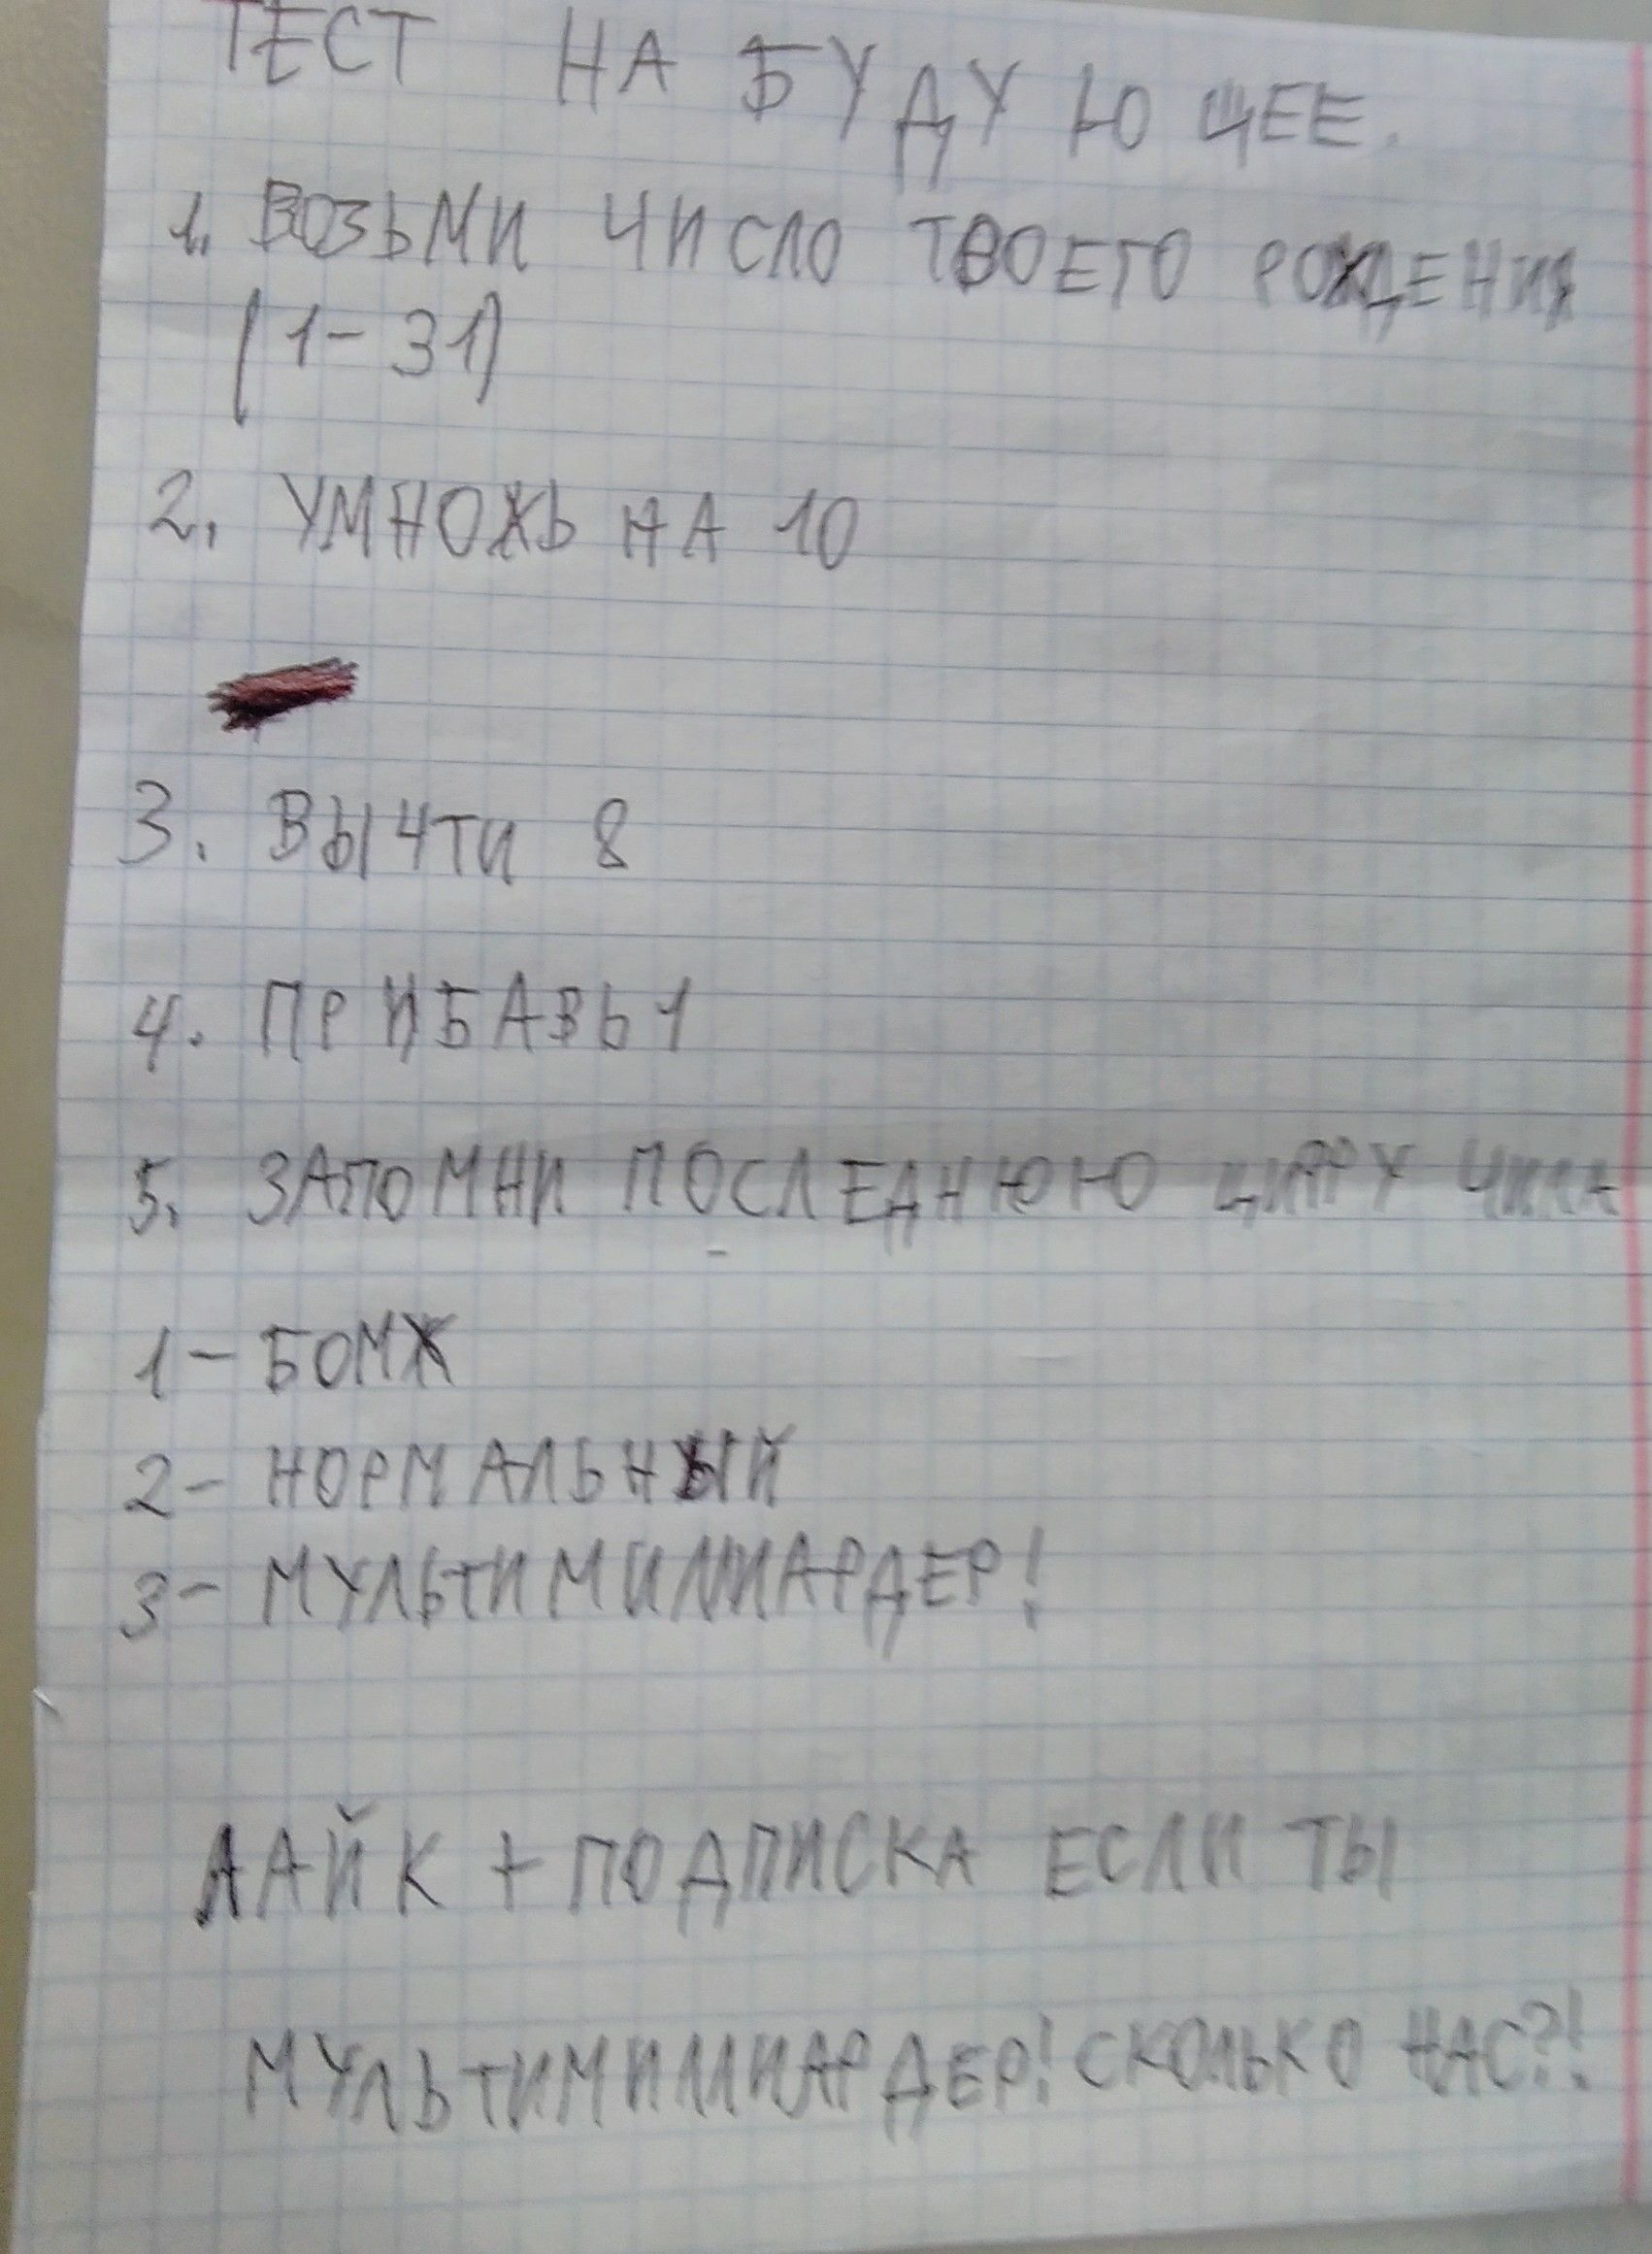 ТЕСТ НА БУДУЮЩЕЕ.
1. ВОЗЬМИ ЧИСЛО ТВОЕГО РОЖДЕНИЯ
(1-31)
2. УМНОЖЬ НА 10
3. ВЫЧТИ 8
4. ПРИБАВЬ 1
5. ЗАПОМНИ ПОСЛЕДНЮЮ ЦИФРУ
1- БОМЖ
2- НОРМАЛЬНЫЙ
3- МУЛЬТИМИЛЛИАРДЕР!
ЛАЙК + ПОДПИСКА ЕСЛИ ТЫ
МУЛЬТИМИЛЛИАРДЕР! СКОЛЬКО НАС?!